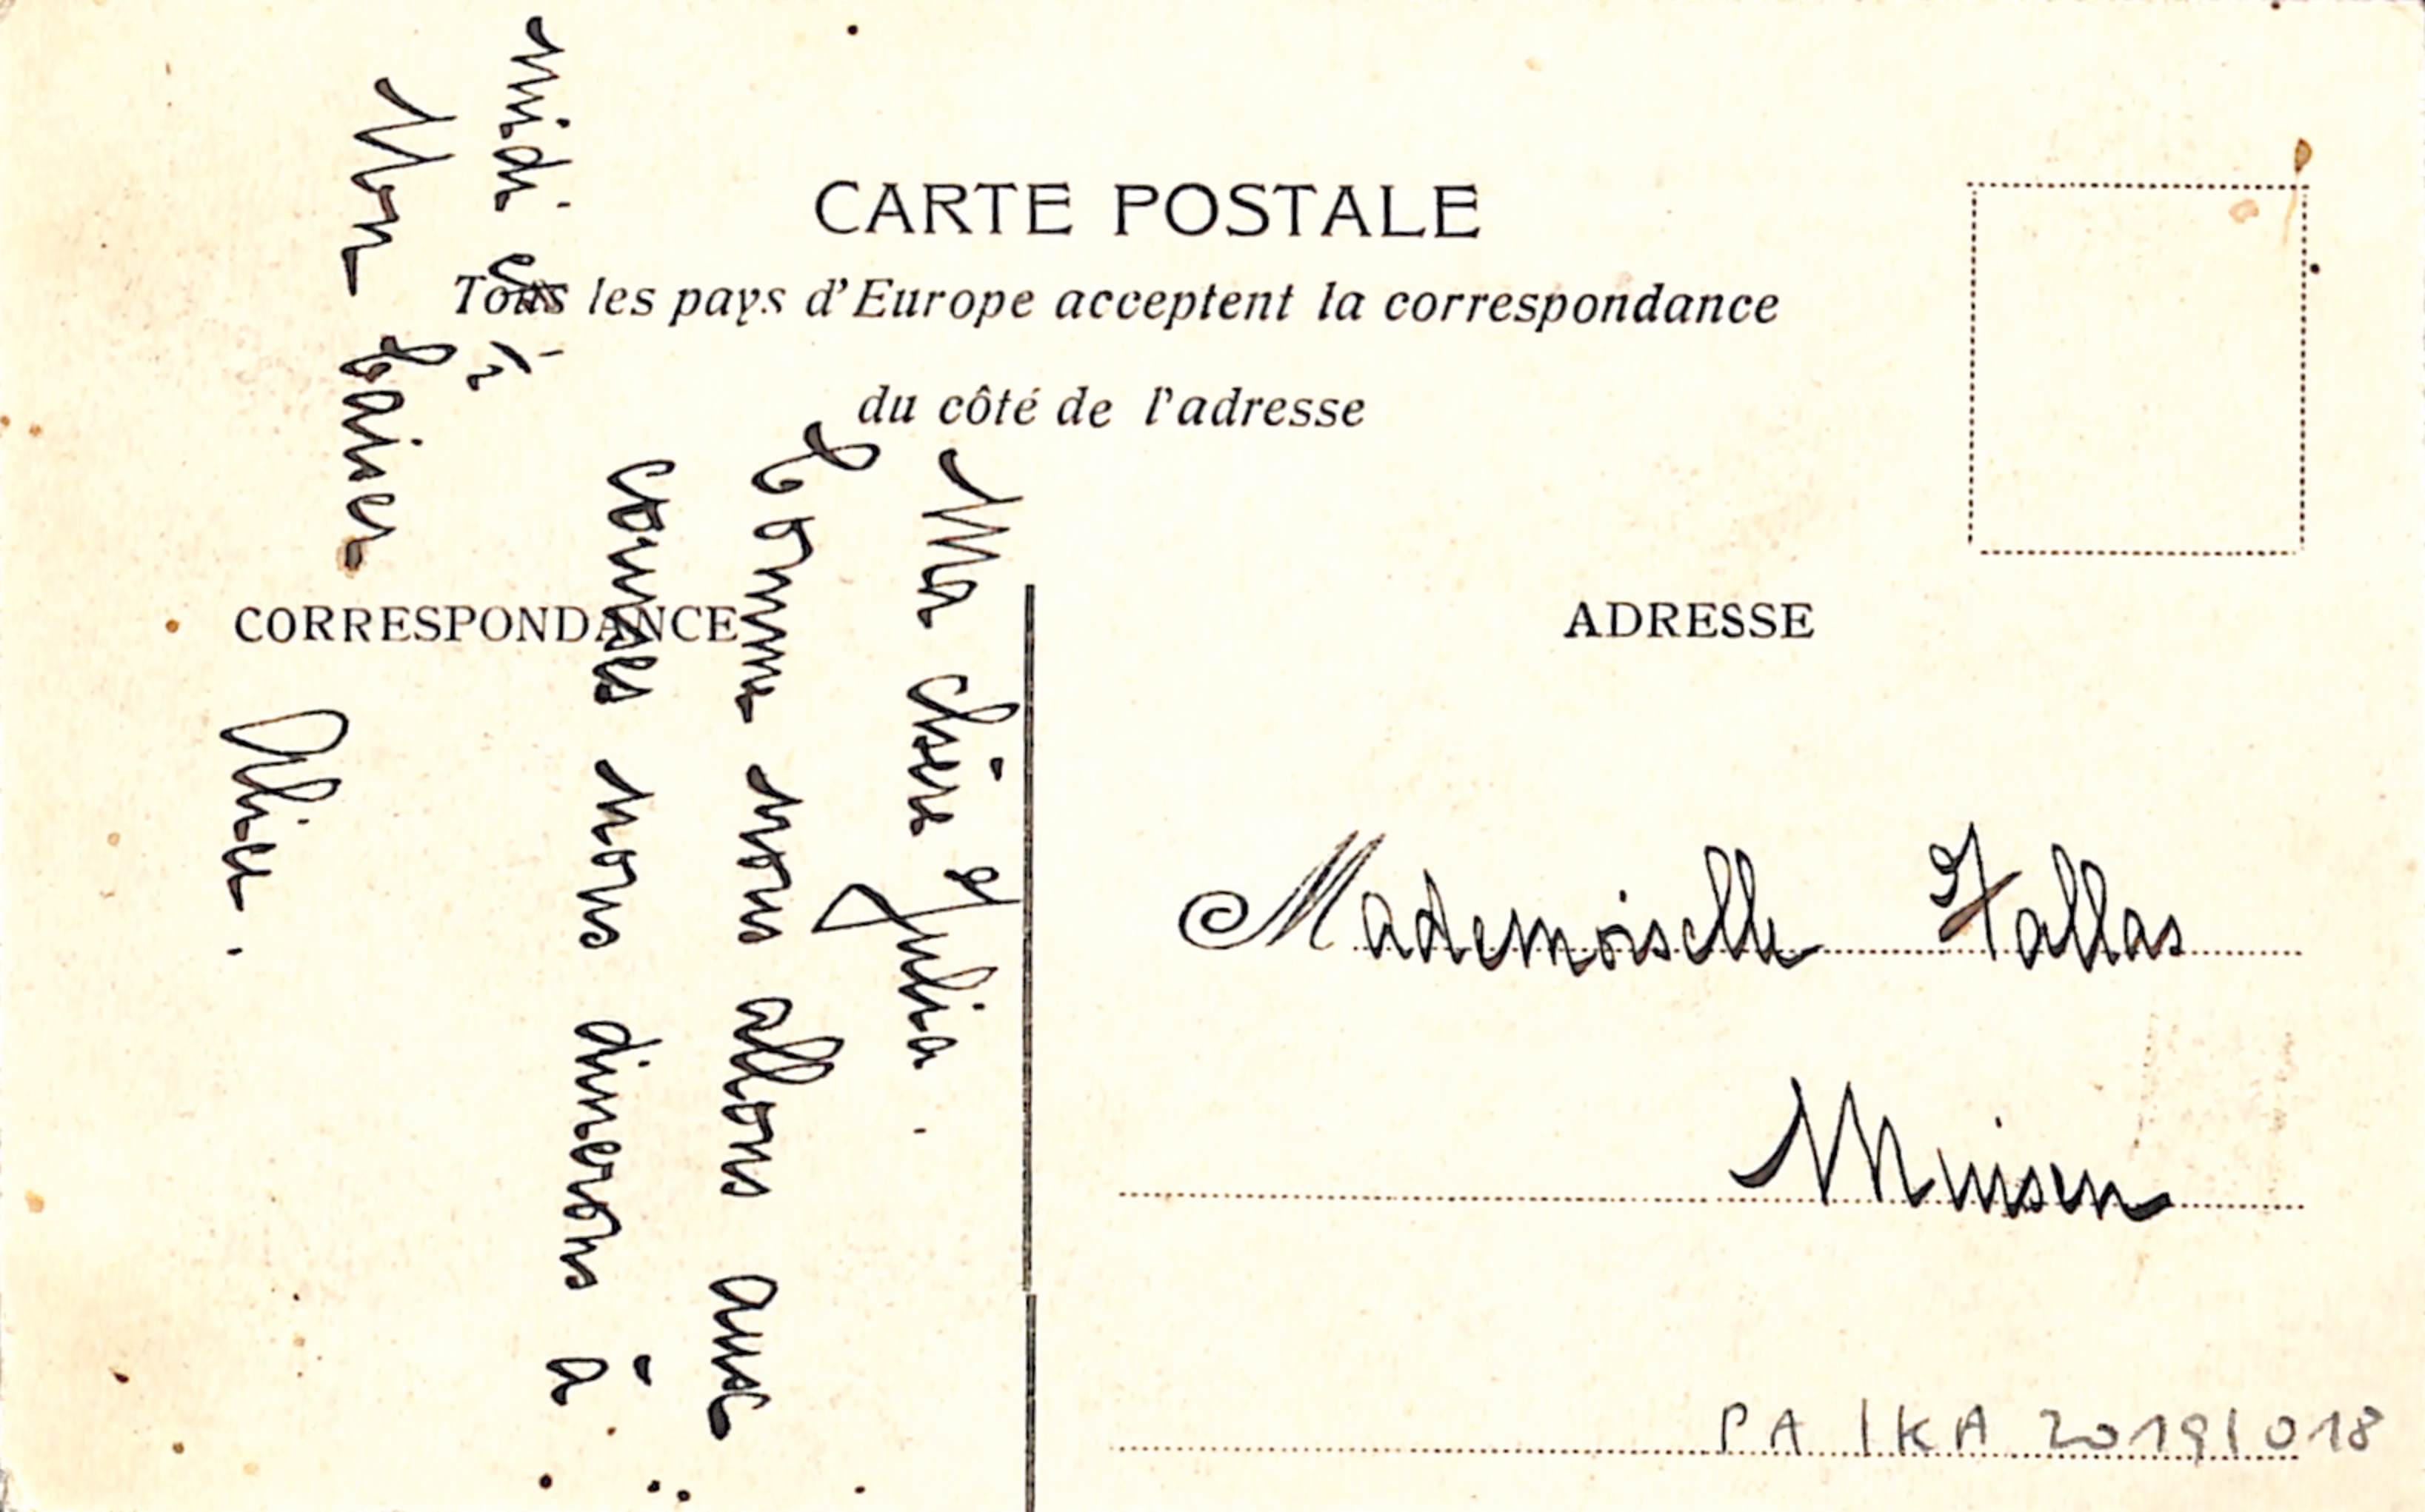 CARTE POSTALE
Tous les pays d'Europe acceptent la correspondance
du côté de l'adresse
CORRESPONDANCE
ADRESSE
Ma chère Julia.
Comme nous allons aux
courses nous dinerons à
midi et
Mon baiser
Alice.
Mademoiselle Hallas
PA IKA 20191018